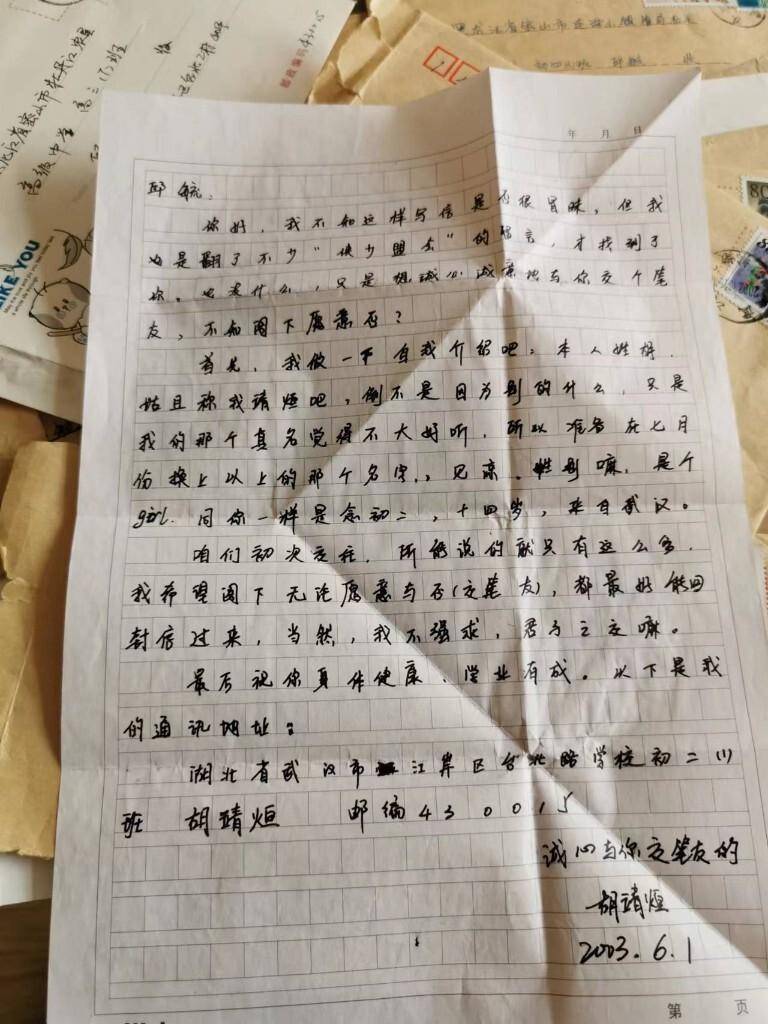 邮政编码430015
高级中学 高三(1)班
收
LIKE YOU
年 月 日
邱毓:
你好,我不知这样写信是否很冒昧,但我
也是翻了不少“侠少盟友”的留言,才找到了
你。也没什么,只是想诚心诚意地与你交个笔
友,不知阁下愿意否?
首先,我做一下自我介绍吧。本人姓胡,
姑且称我靖烜吧,倒不是因为别的什么,只是
我的那个真名觉得不大好听,所以准备在七月
份换上以上的那个名字,见亲。性别嘛,是个
girl. 同你一样是念初二,十四岁,来自武汉。
咱们初次交往,所能说的就只有这么多,
我希望阁下无论愿意与否(交笔友),都最好能回
封信过来,当然,我不强求,君子之交嘛。
最后祝你身体健康、学业有成。以下是我
的通讯地址:
湖北省武汉市江岸区台北路学校初二(1)
班 胡靖烜 邮编430015
诚心与你交笔友的
胡靖烜
2003.6.1
第 页